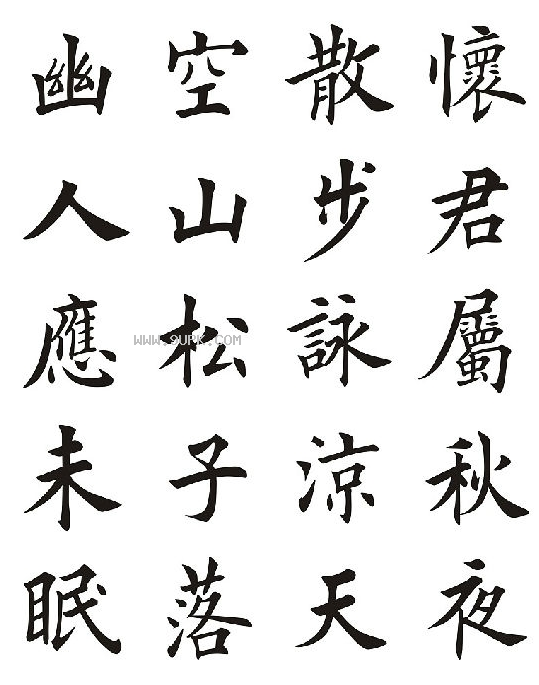 懷君屬秋夜
散步詠涼天
空山松子落
幽人應未眠
WWW.9UPK.COM